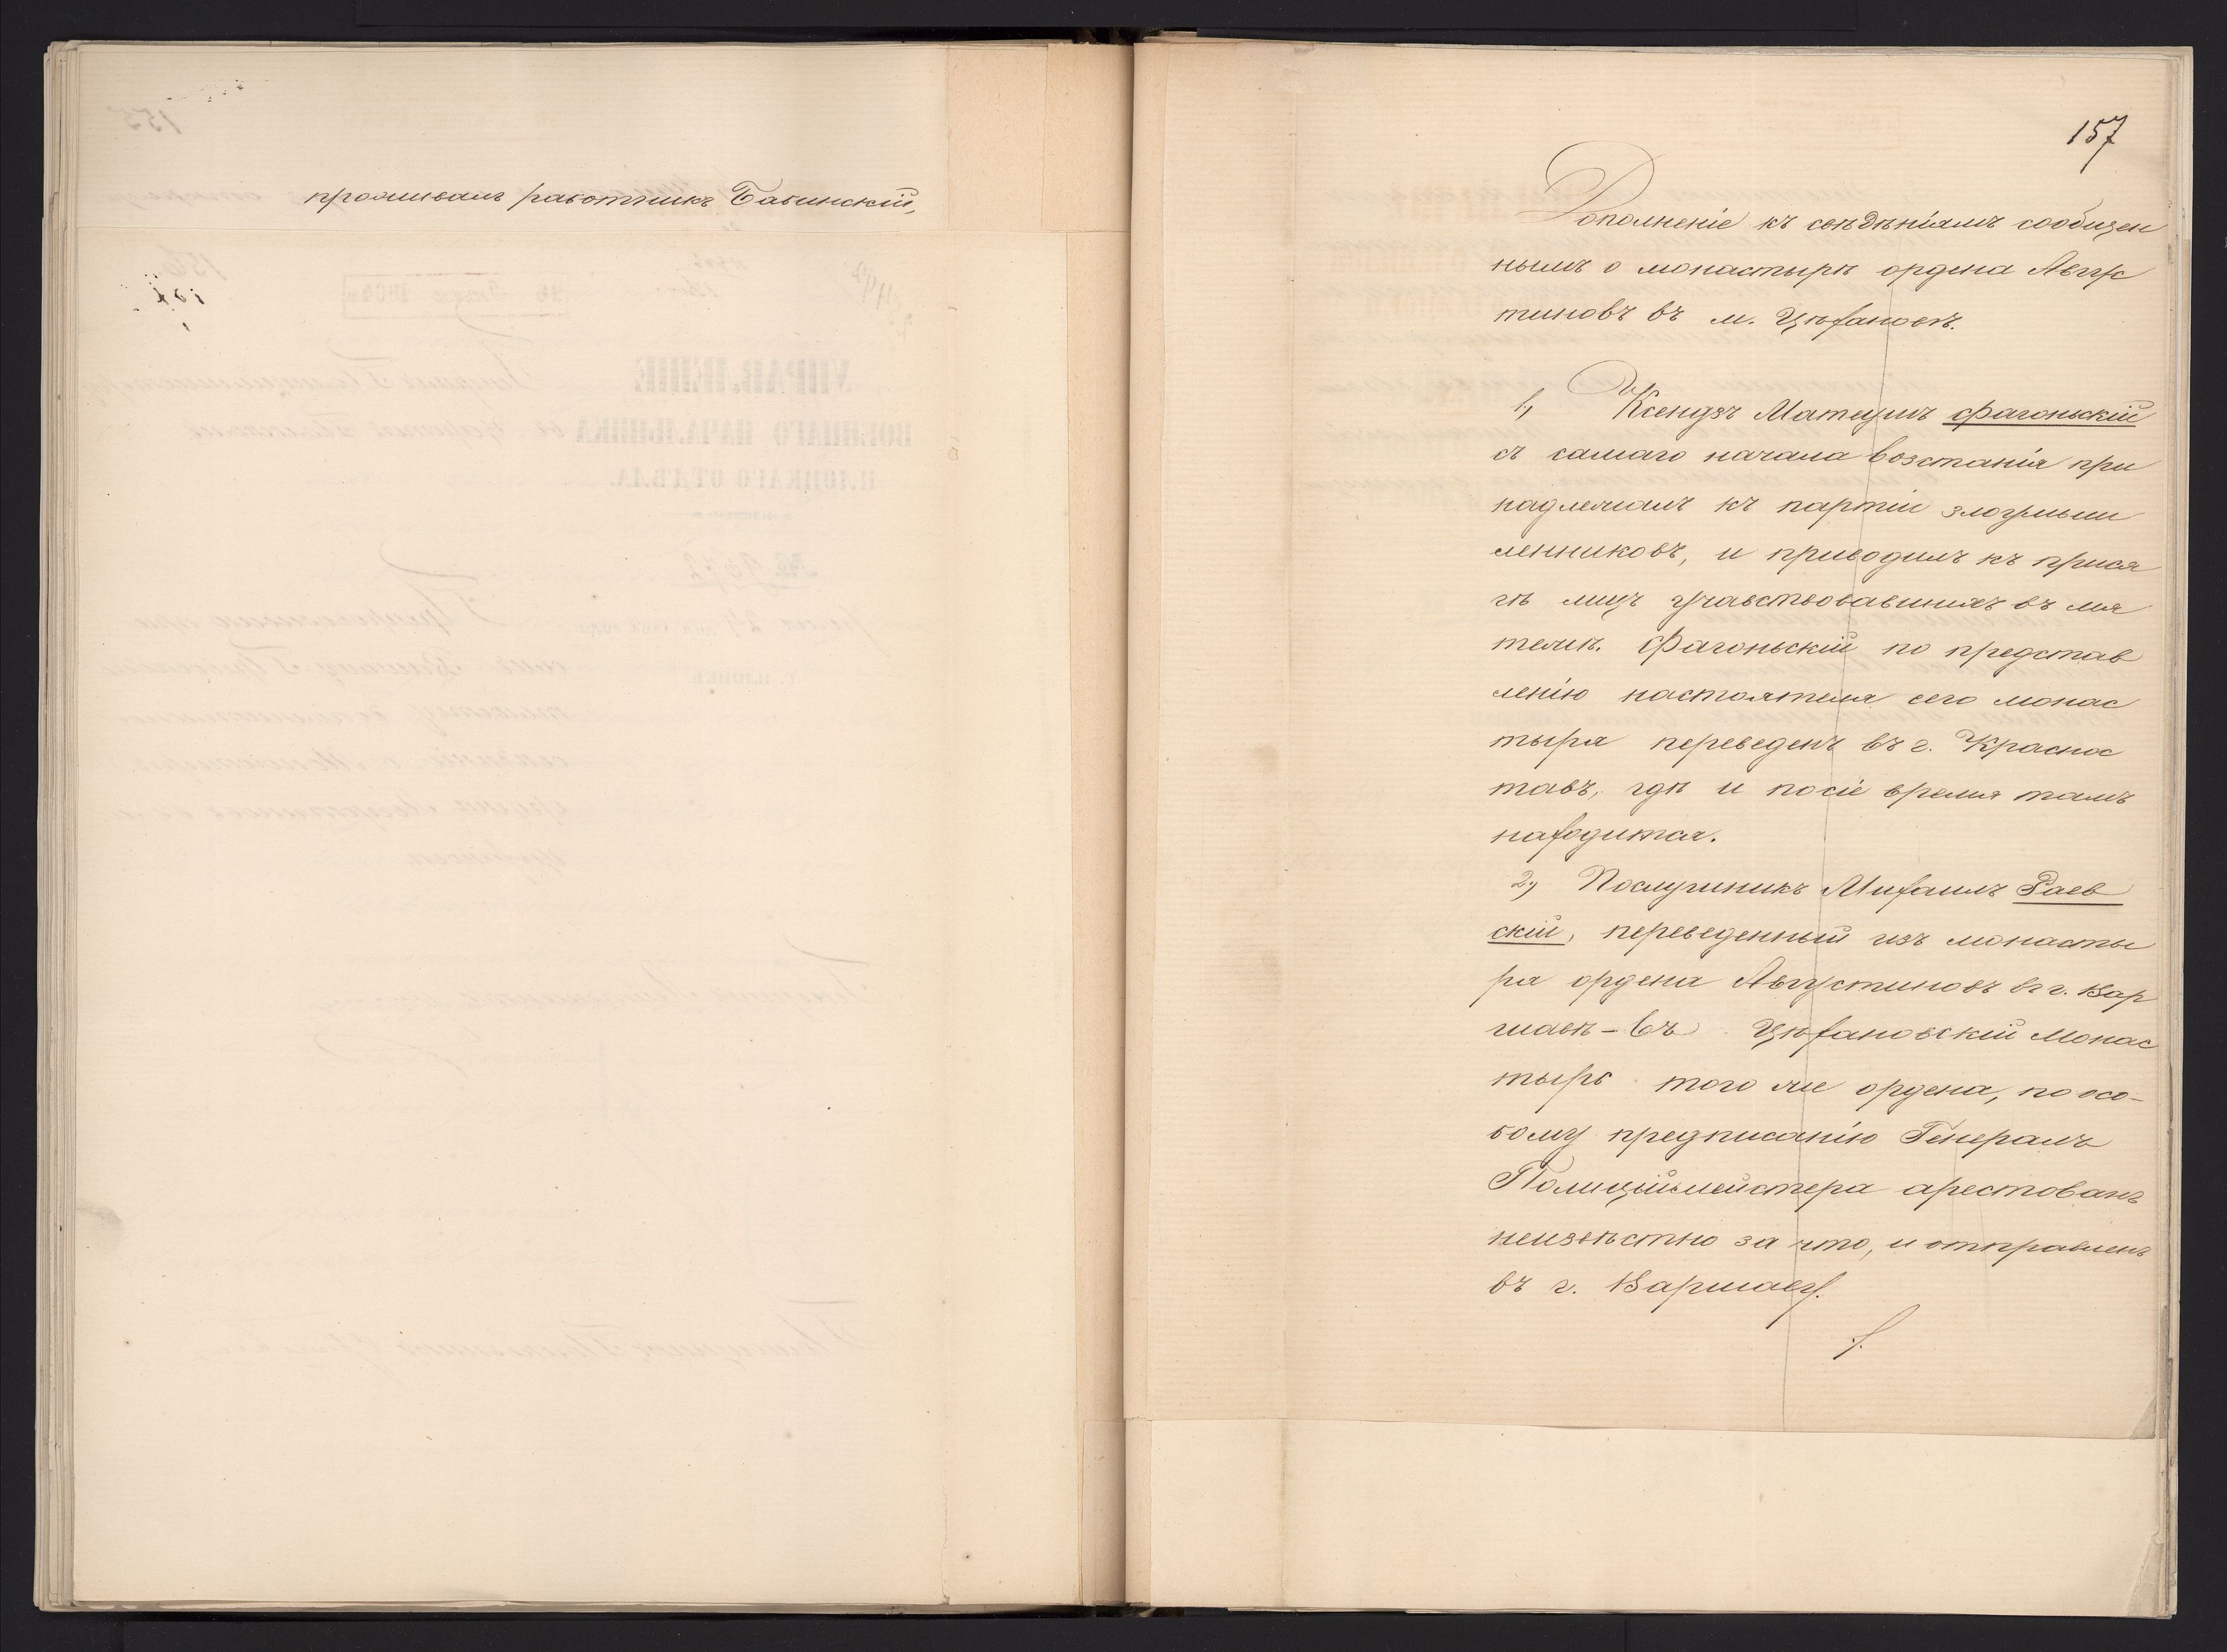 проживалъ работникъ Бабинскій,
157
Дополненіе къ свѣдѣніямъ сообщен
нымъ о монастырѣ ордена Авгус
тиновъ въ м. Цѣхановѣ.
1, Ксендзъ Матеушъ Фагоньскій
съ самаго начала возстанія при
надлежалъ къ партіи злоумыш
ленниковъ, и приводилъ къ прися
гѣ лицъ учавствовавшихъ въ мя
тежѣ. Фагоньскій по представ
ленію настоятеля сего монас
тыря переведенъ въ г. Краснос
тавъ, гдѣ и по сіе время тамъ
находится.
2, Послушникъ Михаилъ Раев
скій, переведенный изъ монасты
ря ордена Августиновъ въ г. Вар
шавѣ - въ Цѣхановскій монас
тырь того же ордена, по осо-
бому предписанію Генералъ
Полиціймейстера арестованъ
неизвѣстно за что, и отправленъ
въ г. Варшаву.